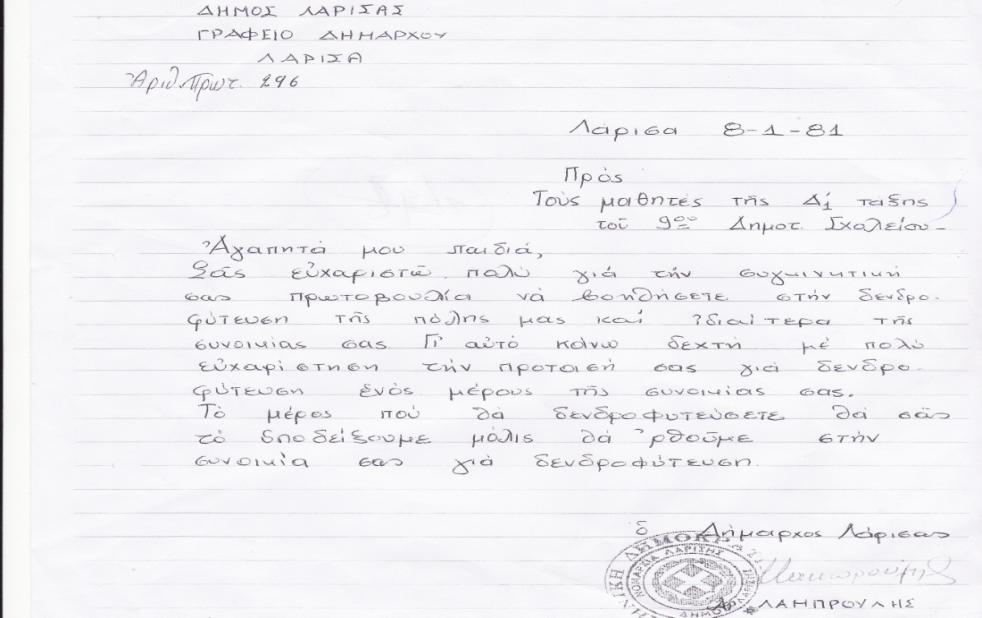 ΔΗΜΟΣ ΛΑΡΙΣΑΣ
ΓΡΑΦΕΙΟ ΔΗΜΑΡΧΟΥ
ΛΑΡΙΣΑ
Ἀριθ. Πρωτ. 296
Λάρισα 8-1-81
Πρός
Τούς μαθητές τῆς Δ΄ τάξης
τοῦ 9ου Δημοτ. Σχολείου-
Ἀγαπητά μου παιδιά,
Σᾶς εὐχαριστῶ πολύ γιά τήν συγκινητική
σας πρωτοβουλία νά βοηθήσετε στήν δενδρο-
φύτευση τῆς πόλης μας καί ἰδιαίτερα τῆς
συνοικίας σας. Γι' αὐτό κάνω δεχτή μέ πολύ
εὐχαρίστηση τήν πρότασή σας γιά δενδρο-
φύτευση ἑνός μέρους τῆς συνοικίας σας.
Τό μέρος πού θά δενδροφυτεύσετε θά σᾶς
τό ὑποδείξουμε μόλις θά ᾿ρθοῦμε στήν
συνοικία σας γιά δενδροφύτευση.
ὁ Δήμαρχος Λάρισας
ΝΟΜΑΡΧΙΑ ΛΑΡΙΣΗΣ
ΔΗΜΟΣ
ΛΑΜΠΡΟΥΛΗΣ